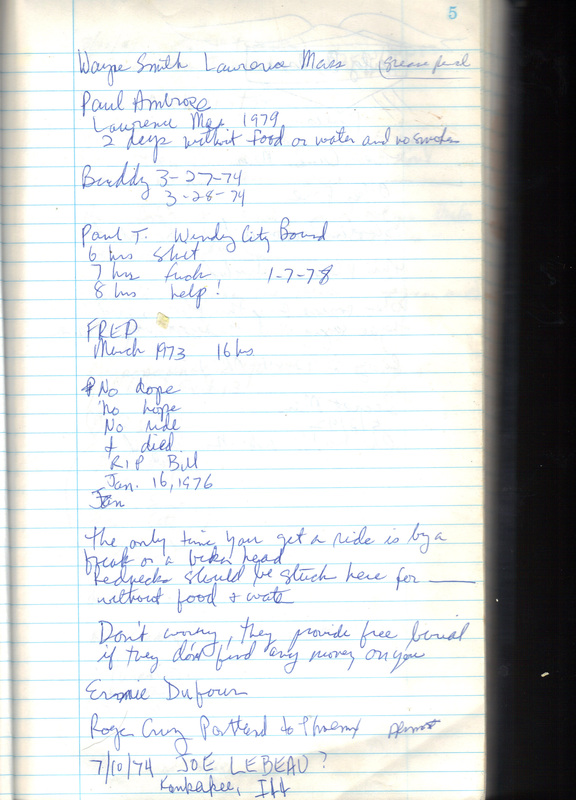 5
Wayne Smith Lawrence Mass (grease pencil
Paul Ambrose
Lawrence Mas 1979
2 days without food or water and no smokes
Buddy 3-27-74
3-28-74
Paul T. Windy City Bound
6 hrs shit
7 hrs fuck 1-7-78
8 hrs help!
FRED
March 1973 16 hrs
No dope
no hope
No ride
I died
RIP Bill
Jan. 16, 1976
Jan
The only time you get a ride is by a
freak or a head
Rednecks should be stuck here for ____
without food & water
Don't worry, they provide free burial
if they don't find any money on you
Ernie Dufour
Roger Cruz Portland to Phoenix
7/10/74 JOE LEBEAU ?
Kankakee, Ill